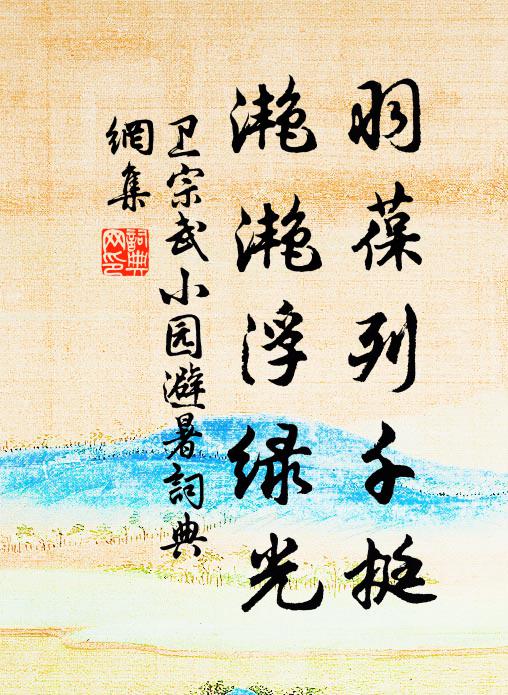 羽葆列千挺
滟滟浮绿光
卫宗武小园避暑詞典
網集
詞典
网印